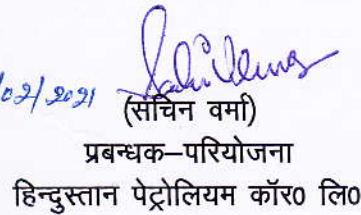 /02/2021
(सचिन वर्मा)
प्रबन्धक–परियोजना
हिन्दुस्तान पेट्रोलियम कॉर0 लि0